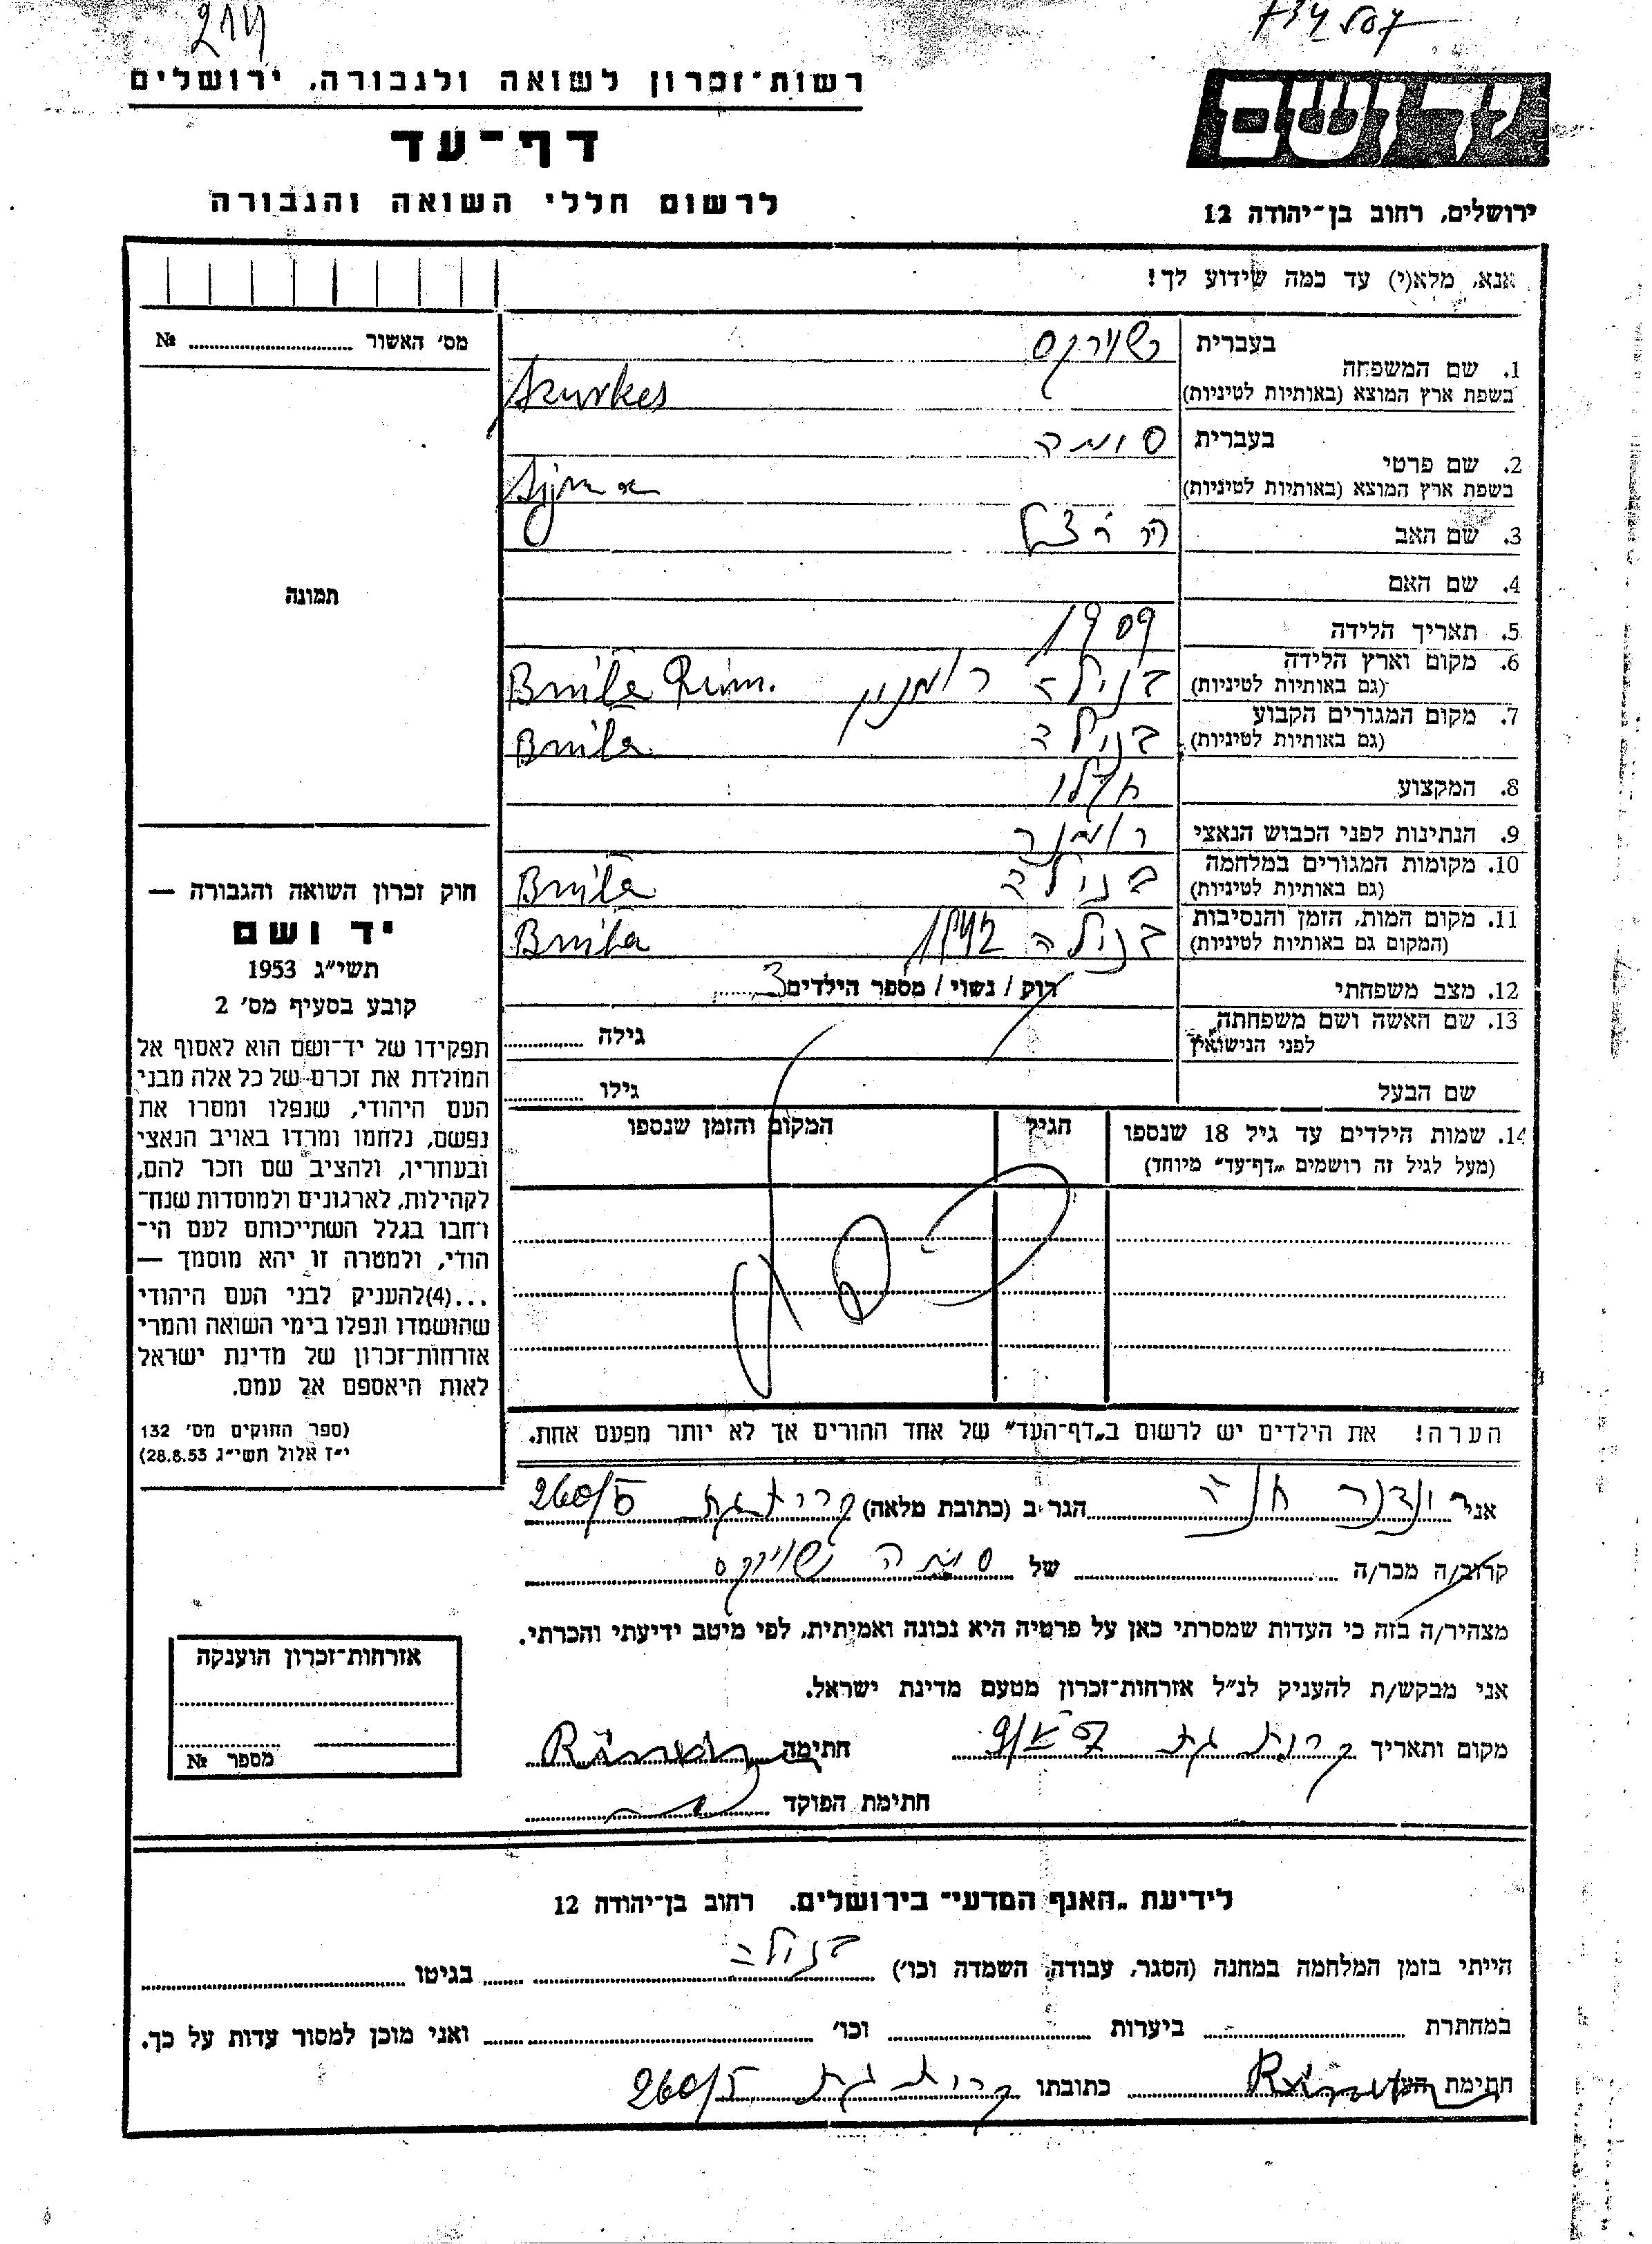 214
רשות־זכרון לשואה ולגבורה, ירושלים
דף־עד
לרשום חללי השואה והגבורה
ידושם
ירושלים, רחוב בן־יהודה 12
אנא, מלא(י) עד כמה שידוע לך!
מס׳ האשור № ........
תמונה
1. שם המשפחה
בעברית
בשפת ארץ המוצא (באותיות לטיניות)
2. שם פרטי
בעברית סומה
בשפת ארץ המוצא (באותיות לטיניות)
3. שם האב
4. שם האם
5. תאריך הלידה 1909
6. מקום וארץ הלידה בנילה Bnila
(גם באותיות לטיניות)
7. מקום המגורים הקבוע בנילה Bnila
(גם באותיות לטיניות)
8. המקצוע
9. הנתינות לפני הכבוש הנאצי
10. מקומות המגורים במלחמה בנילה Bnila
(גם באותיות לטיניות)
11. מקום המות, הזמן והנסיבות בנילה Bnila
(המקום גם באותיות לטיניות)
12. מצב משפחתי רוק / נשוי / מספר הילדים 3
13. שם האשה ושם משפחתה גילה
לפני הנישואין
שם הבעל גילו
14. שמות הילדים עד גיל 18 שנספו הגיל המקום והזמן שנספו
(מעל לגיל זה רושמים „דף־עד״ מיוחד)
הערה! את הילדים יש לרשום ב„דף־העד״ של אחד ההורים אך לא יותר מפעם אחת.
חוק זכרון השואה והגבורה —
יד ושם
תשי״ג 1953
קובע בסעיף מס׳ 2
תפקידו של יד־ושם הוא לאסוף אל
המולדת את זכרם של כל אלה מבני
העם היהודי, שנפלו ומסרו את
נפשם, נלחמו ומרדו באויב הנאצי
ובעוזריו, ולהציב שם וזכר להם,
לקהילות, לארגונים ולמוסדות שנח־
רחבו בגלל השתייכותם לעם הי־
הודי, ולמטרה זו יהא מוסמך —
...(4)להעניק לבני העם היהודי
שהושמדו ונפלו בימי השואה והמרי
אזרחות־זכרון של מדינת ישראל
לאות היאספם אל עמם.
(ספר החוקים מס׳ 132
י״ז אלול תשי״ג 28.8.53)
אני הגר ב (כתובת מלאה) קרית גת 260/5
קרוב/ה מכר/ה של סומה
מצהיר/ה בזה כי העדות שמסרתי כאן על פרטיה היא נכונה ואמיתית, לפי מיטב ידיעתי והכרתי.
אני מבקש/ת להעניק לנ״ל אזרחות־זכרון מטעם מדינת ישראל.
מקום ותאריך קרית גת חתימה
חתימת הפוקד
אזרחות־זכרון הוענקה
מספר №
לידיעת „האגף המדעי״ בירושלים, רחוב בן־יהודה 12
הייתי בזמן המלחמה במחנה (הסגר, עבודה, השמדה וכו׳) בנילה בגיטו
במחתרת ביערות וכו׳ ואני מוכן למסור עדות על כך.
חתימת העד כתובתו קרית גת 260/5